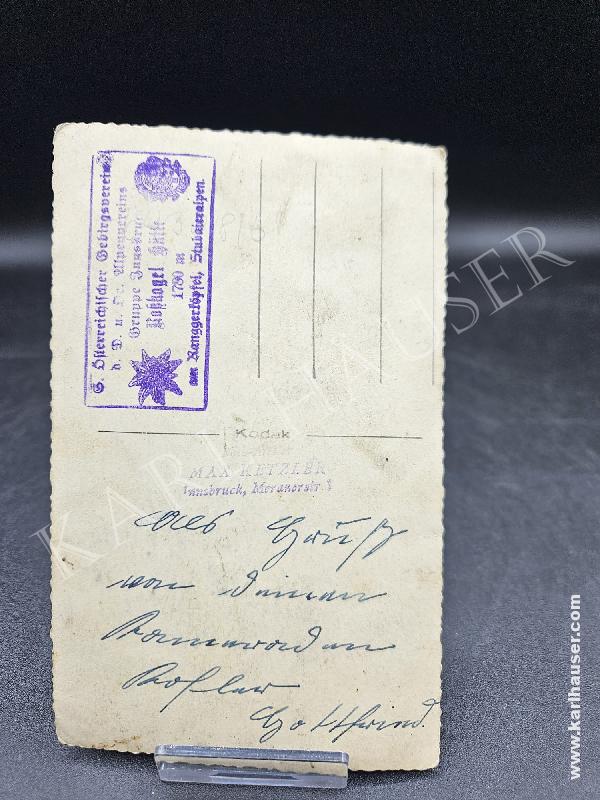 S. Österreichischer Gebirgsverein
d. D. u. Oe. Alpenvereins
Gruppe Innsbruck
Roßkogel Hütte
1780 m
am Ranggerköpfel, Stubaieralpen.
Kodak
MAX HETZLER
Innsbruck, Meranerstr.
als Gruß
von deinen
Kameraden
Kofler
Gottfried.
KARL HAUSER
www.karlhauser.com